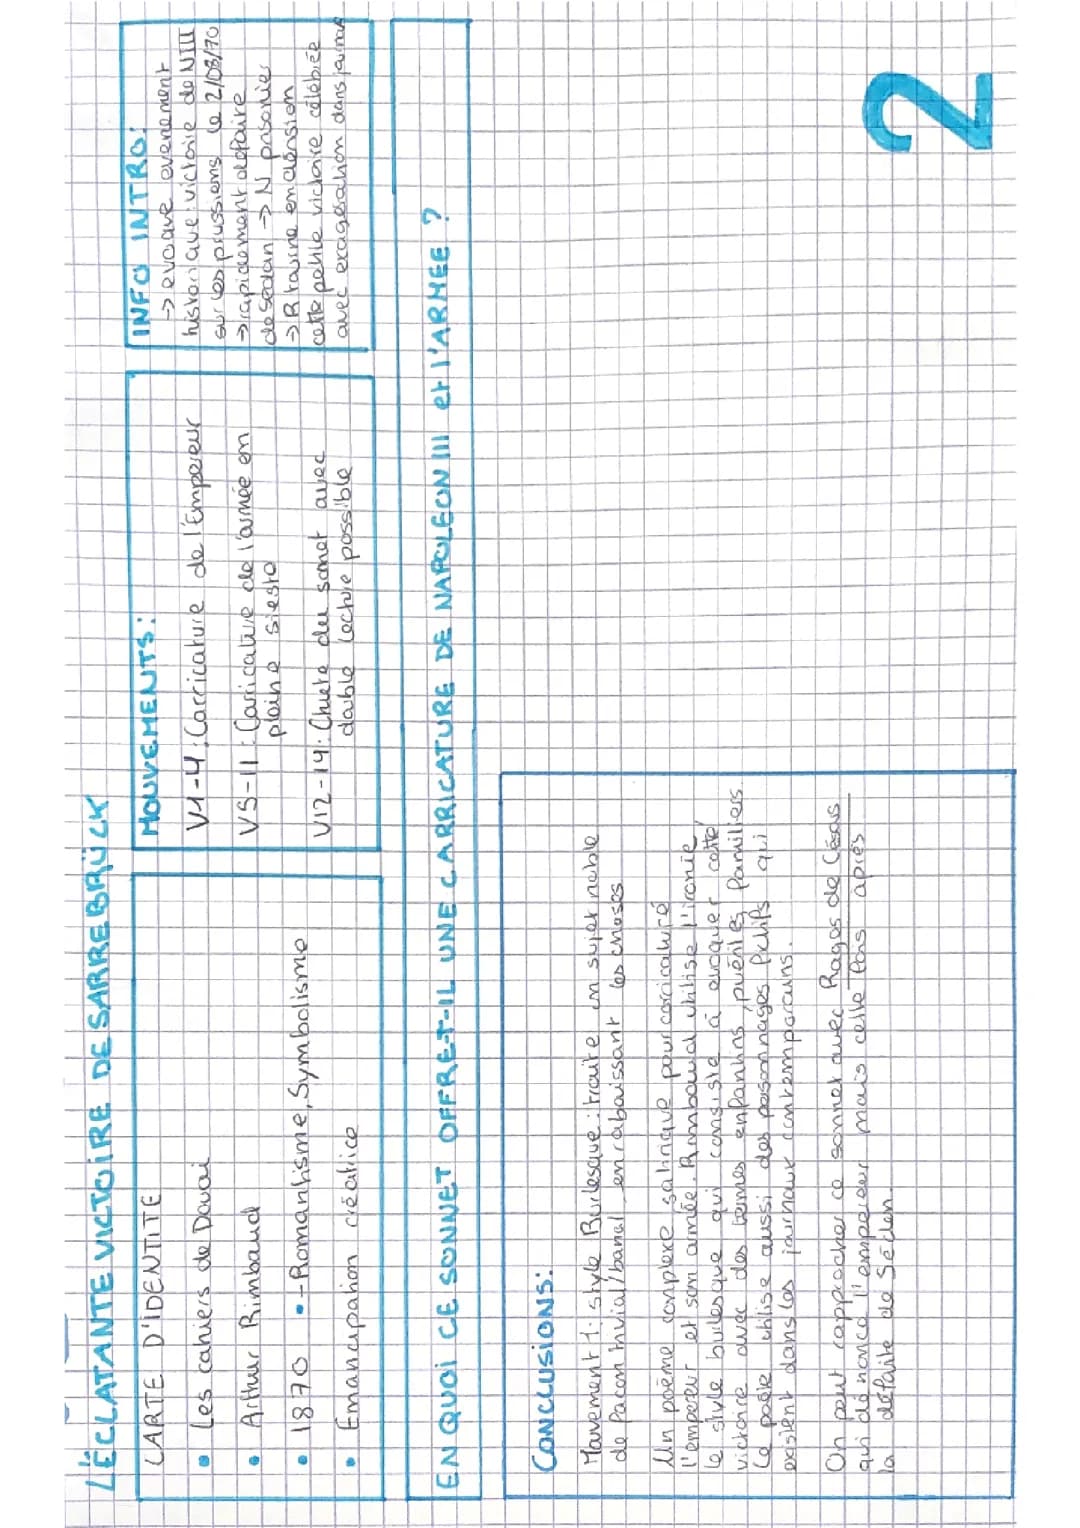 L'ÉCLATANTE VICTOIRE DE SARREBRÜCK
CARTE D'IDENTITE
• Les cahiers de Douai
• Arthur Rimbaud
• 1870 • -Romantisme, Symbolisme
• Emancipation créatrice
MOUVEMENTS:
V1-4: Carricature de l'Empereur
V5-11: Caricature de l'armée en
pleine sieste
V12-14: Chute du sonet avec
double lecture possible
INFO INTRO:
-> evoque evenement
historique: victoire de NIII
sur les prussiens le 2/08/70
-> rapidement defaire
de Sedan -> N prisonier
-> R tourne en dérision
cette petite victoire célébrée
avec exagération dans journaux
EN QUOI CE SONNET OFFRE-T-IL UNE CARRICATURE DE NAPOLEON III et l'ARMEE ?
CONCLUSIONS:
Mouvement 1: style Burlesque: traite un sujet noble
de facon trivial/banal en rabaissant les choses
Un poème complexe satirique pour caricaturé
l'empereur et son armée. Rimbaud utilise l'ironie
le style burlesque qui consiste à evoquer cette
victoire avec des termes enfantins, puérils, familiers.
Le poète utilise aussi des personnages fictifs qui
existent dans les journaux contemporains.
On peut rapprocher ce sonnet avec Rages de Césars
qui dénonce l'empereur mais cette fois après
la défaite de Séden.
2